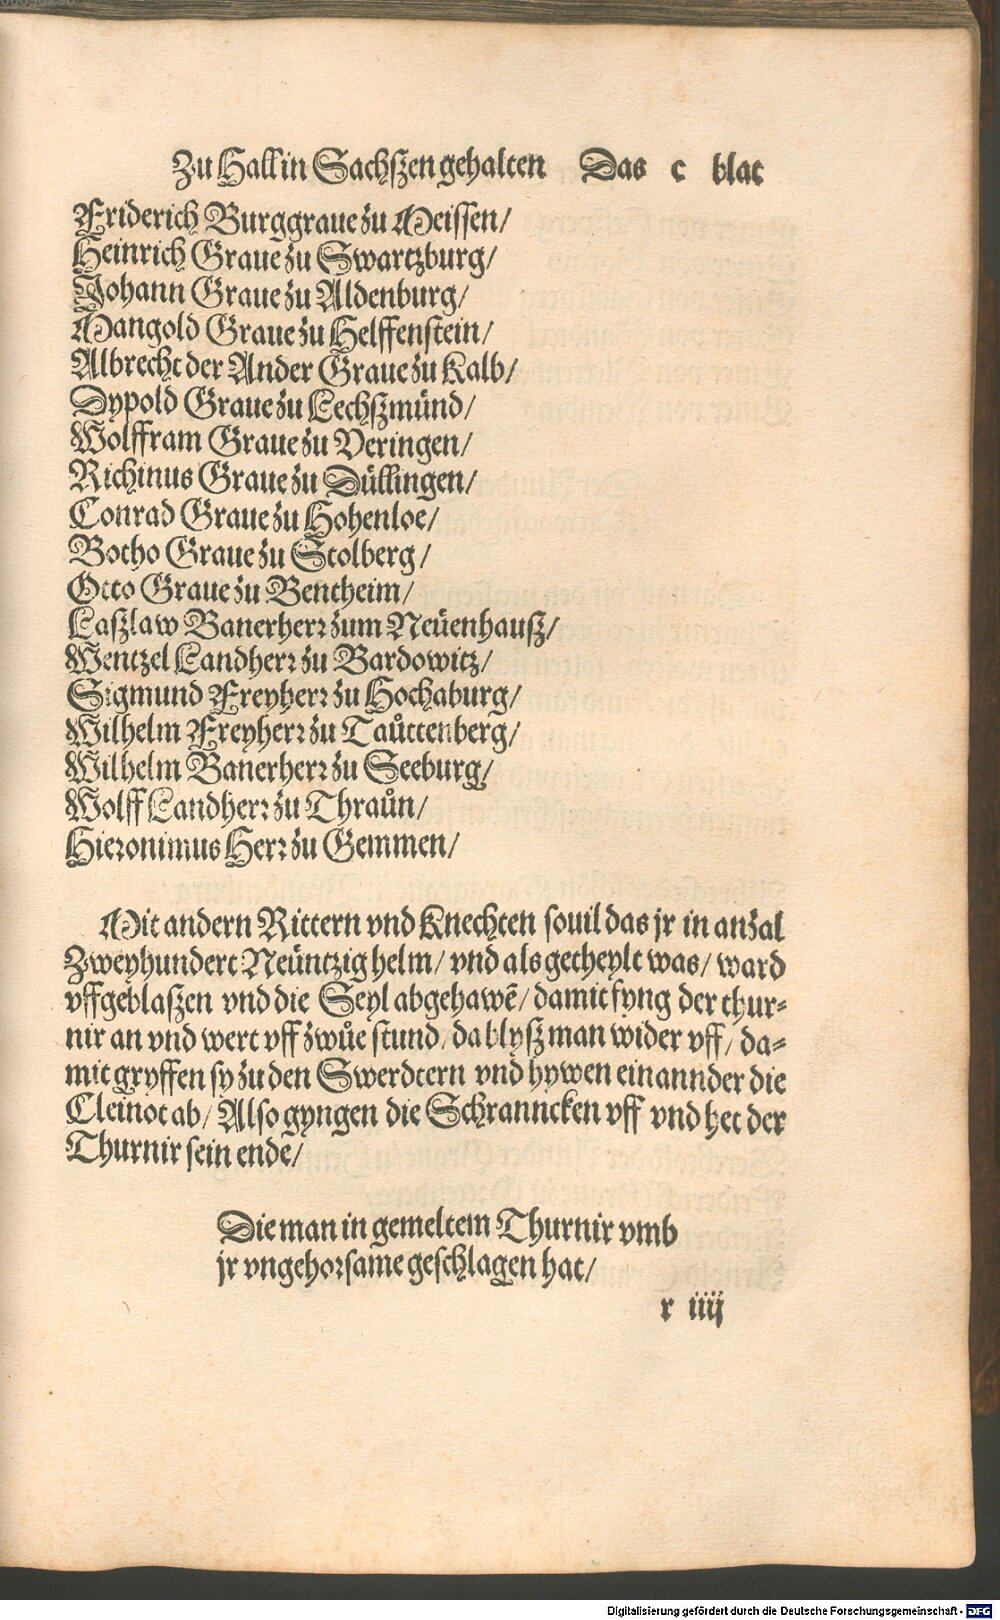 Zu Hall in Sachszen gehalten Das c blat
Friderich Burggraue zu Meissen/
Heinrich Graue zu Swartzburg/
Johann Graue zu Aldenburg/
Mangold Graue zu Helffenstein/
Albrecht der Ander Graue zu Kalb/
Dypold Graue zu Lechszmünd/
Wolffram Graue zu Veringen/
Richinus Graue zu Düllingen/
Conrad Graue zu Hohenloe/
Botho Graue zu Stolberg/
Otto Graue zu Bentheim/
Laszlaw Banerherr zum Neüenhausz/
Wentzel Landherr zu Bardowitz/
Sigmund Freyherr zu Hochaburg/
Wilhelm Freyherr zu Taůttenberg/
Wilhelm Banerherr zu Seeburg/
Wolff Landherr zu Thraůn/
Hieronimus Herr zu Gemmen/
Mit andern Rittern vnd Knechten souil das jr in anzal
Zweyhundert Neüntzig helm/ vnd als getheylt was/ ward
vffgeblaszen vnd die Seyl abgehawē/ damit fyng der thur-
nir an vnd wert vff zwůe stund/ da blysz man wider vff/ da-
mit gryffen sy zu den Swerdtern vnd hywen einannder die
Cleinot ab/ Also gyngen die Schranncken vff vnd het der
Thurnir sein ende/
Die man in gemeltem Thurnir vmb
jr vngehorsame geschlagen hat/
r iiij
Digitalisierung gefördert durch die Deutsche Forschungsgemeinschaft - DFG